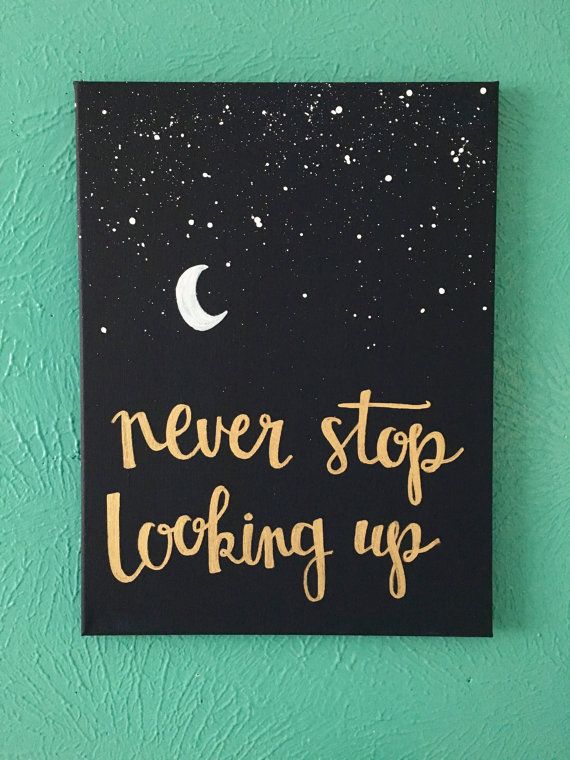 never stop
looking up